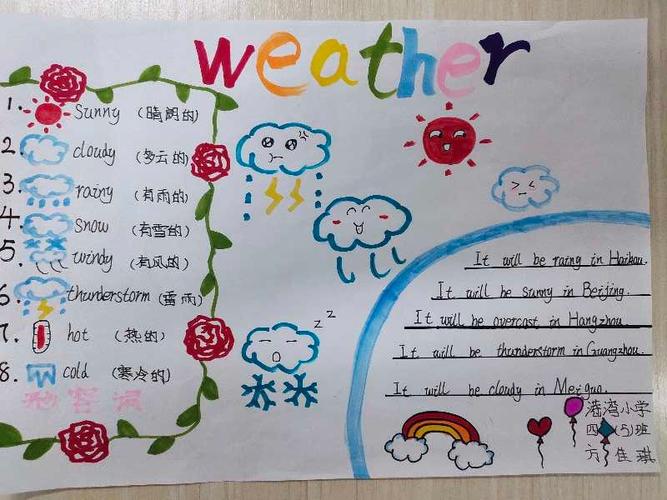 weather
1. Sunny (晴朗的)
2. cloudy (多云的)
3. rainy (有雨的)
4. snow (有雪的)
5. windy (有风的)
6. thunderstorm (雷雨)
7. hot (热的)
8. cold (寒冷的)
形容词
z z
It will be raing in Haikou.
It will be sunny in Beijing.
It will be overcast in Hangzhou.
It will be thunderstorm in Guangzhou.
It will be cloudy in Meiguo.
港湾小学
四(5)班
方佳琪